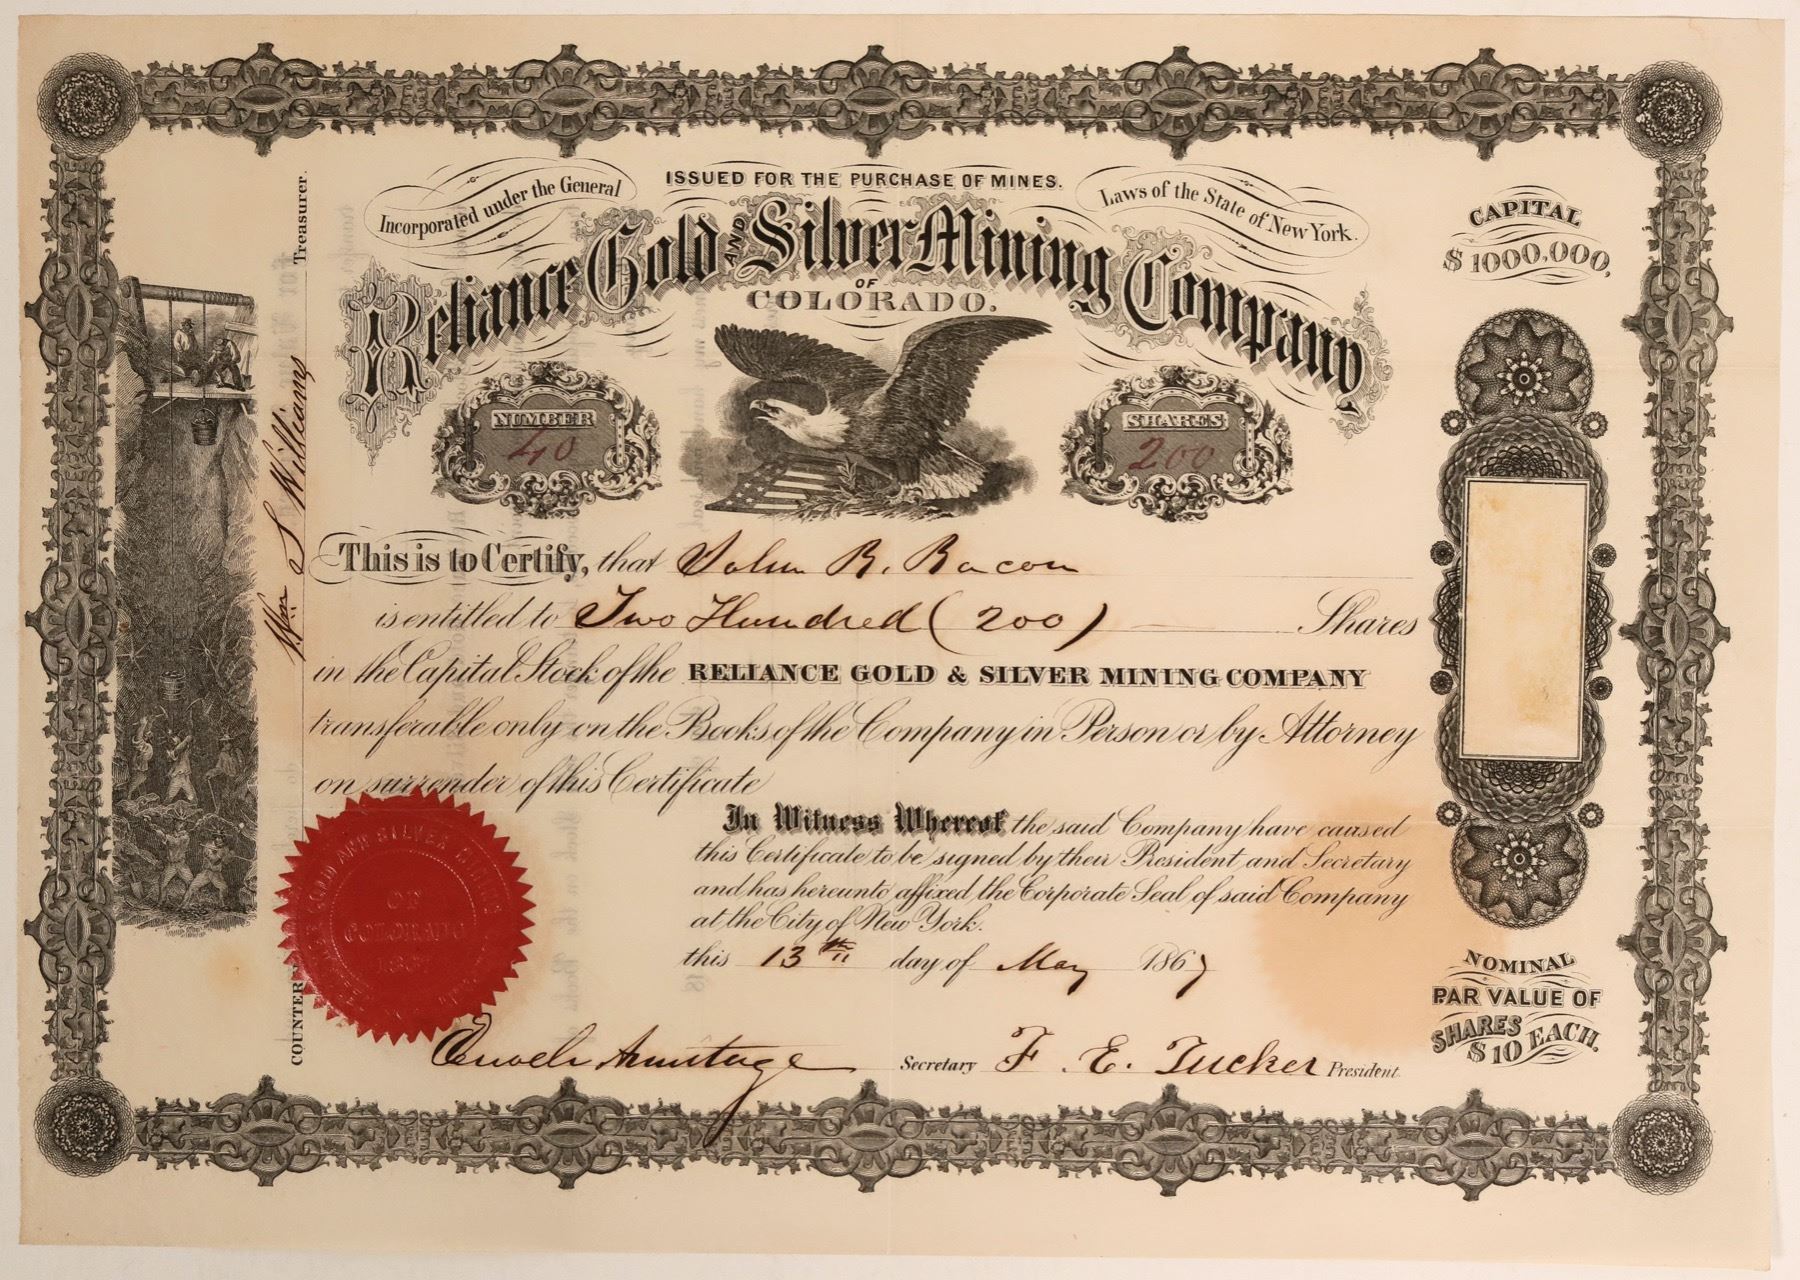 ISSUED FOR THE PURCHASE OF MINES.
Incorporated under the General Laws of the State of New York.
Reliance Gold AND Silver Mining Company
OF
COLORADO.
CAPITAL
$1000,000,
NUMBER
40
SHARES
200
This is to Certify, that John R. Bacon
is entitled to Two Hundred (200) Shares
in the Capital Stock of the RELIANCE GOLD & SILVER MINING COMPANY
transferable only on the Books of the Company in Person or by Attorney
on surrender of this Certificate
In Witness Whereof the said Company have caused
this Certificate to be signed by their President and Secretary
and has hereunto affixed the Corporate Seal of said Company
at the City of New York.
this 13th day of May 1867
Enoch Armitage Secretary F. E. Tucker President
NOMINAL
PAR VALUE OF
SHARES
$10 EACH.
COUNTER
Wm S Williams
Treasurer.
GOLD AND SILVER MINING
OF
COLORADO
1867